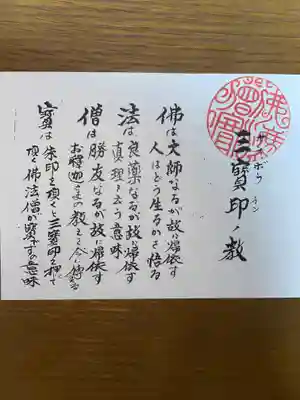 三寳印ノ教
サンボウイン
佛は大師なるが故に帰依す
人はどう生るかを悟る
法は良薬なるが故に帰依す
真理と云う意味
僧は勝友なるが故に帰依す
お釈迦さまの教えを今に傳る
寳は朱印を頂くと三寳印を押して
頂く佛法僧が寳ですの意味